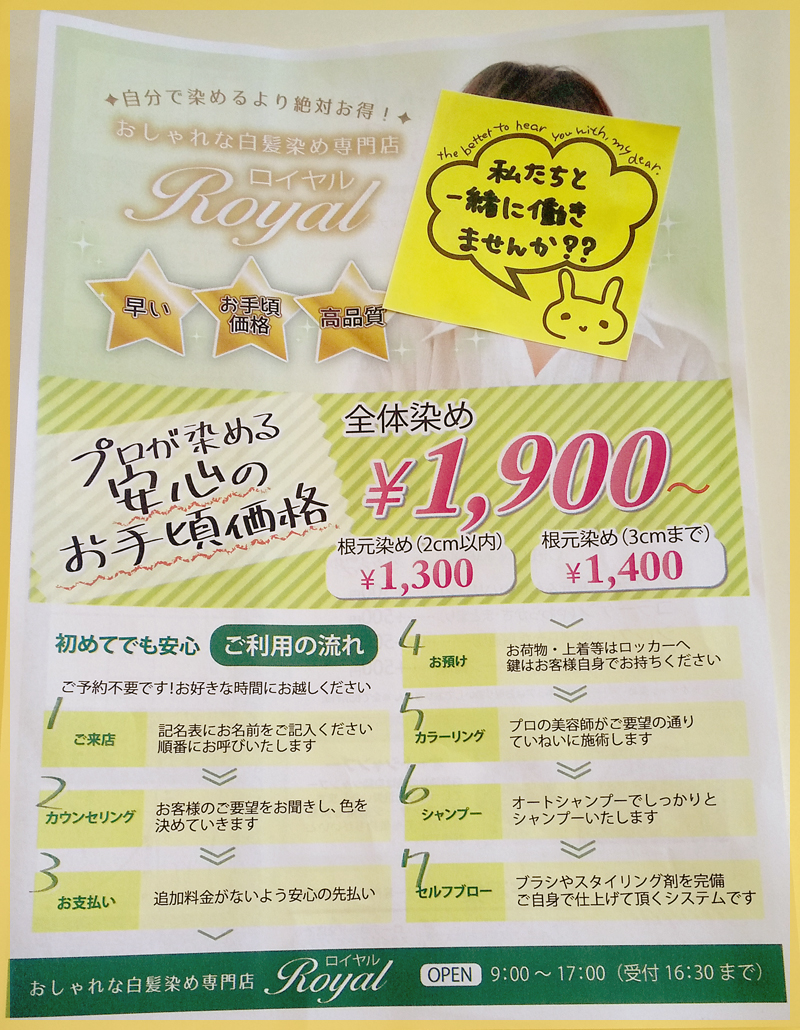 ✦自分で染めるより絶対お得！✦
おしゃれな白髪染め専門店
ロイヤル
Royal
早い
お手頃
価格
高品質
the better to hear you with, my dear.
私たちと
一緒に働き
ませんか??
プロが染める
安心の
お手頃価格
全体染め
¥1,900～
根元染め（2cm以内）
¥1,300
根元染め（3cmまで）
¥1,400
初めてでも安心 ご利用の流れ
ご予約不要です！お好きな時間にお越しください
1 ご来店
記名表にお名前をご記入ください
順番にお呼びいたします
2 カウンセリング
お客様のご要望をお聞きし、色を
決めていきます
3 お支払い
追加料金がないよう安心の先払い
4 お預け
お荷物・上着等はロッカーへ
鍵はお客様自身でお持ちください
5 カラーリング
プロの美容師がご要望の通り
ていねいに施術します
6 シャンプー
オートシャンプーでしっかりと
シャンプーいたします
7 セルフブロー
ブラシやスタイリング剤を完備
ご自身で仕上げて頂くシステムです
おしゃれな白髪染め専門店
ロイヤル
Royal
OPEN 9:00～17:00（受付16:30まで）